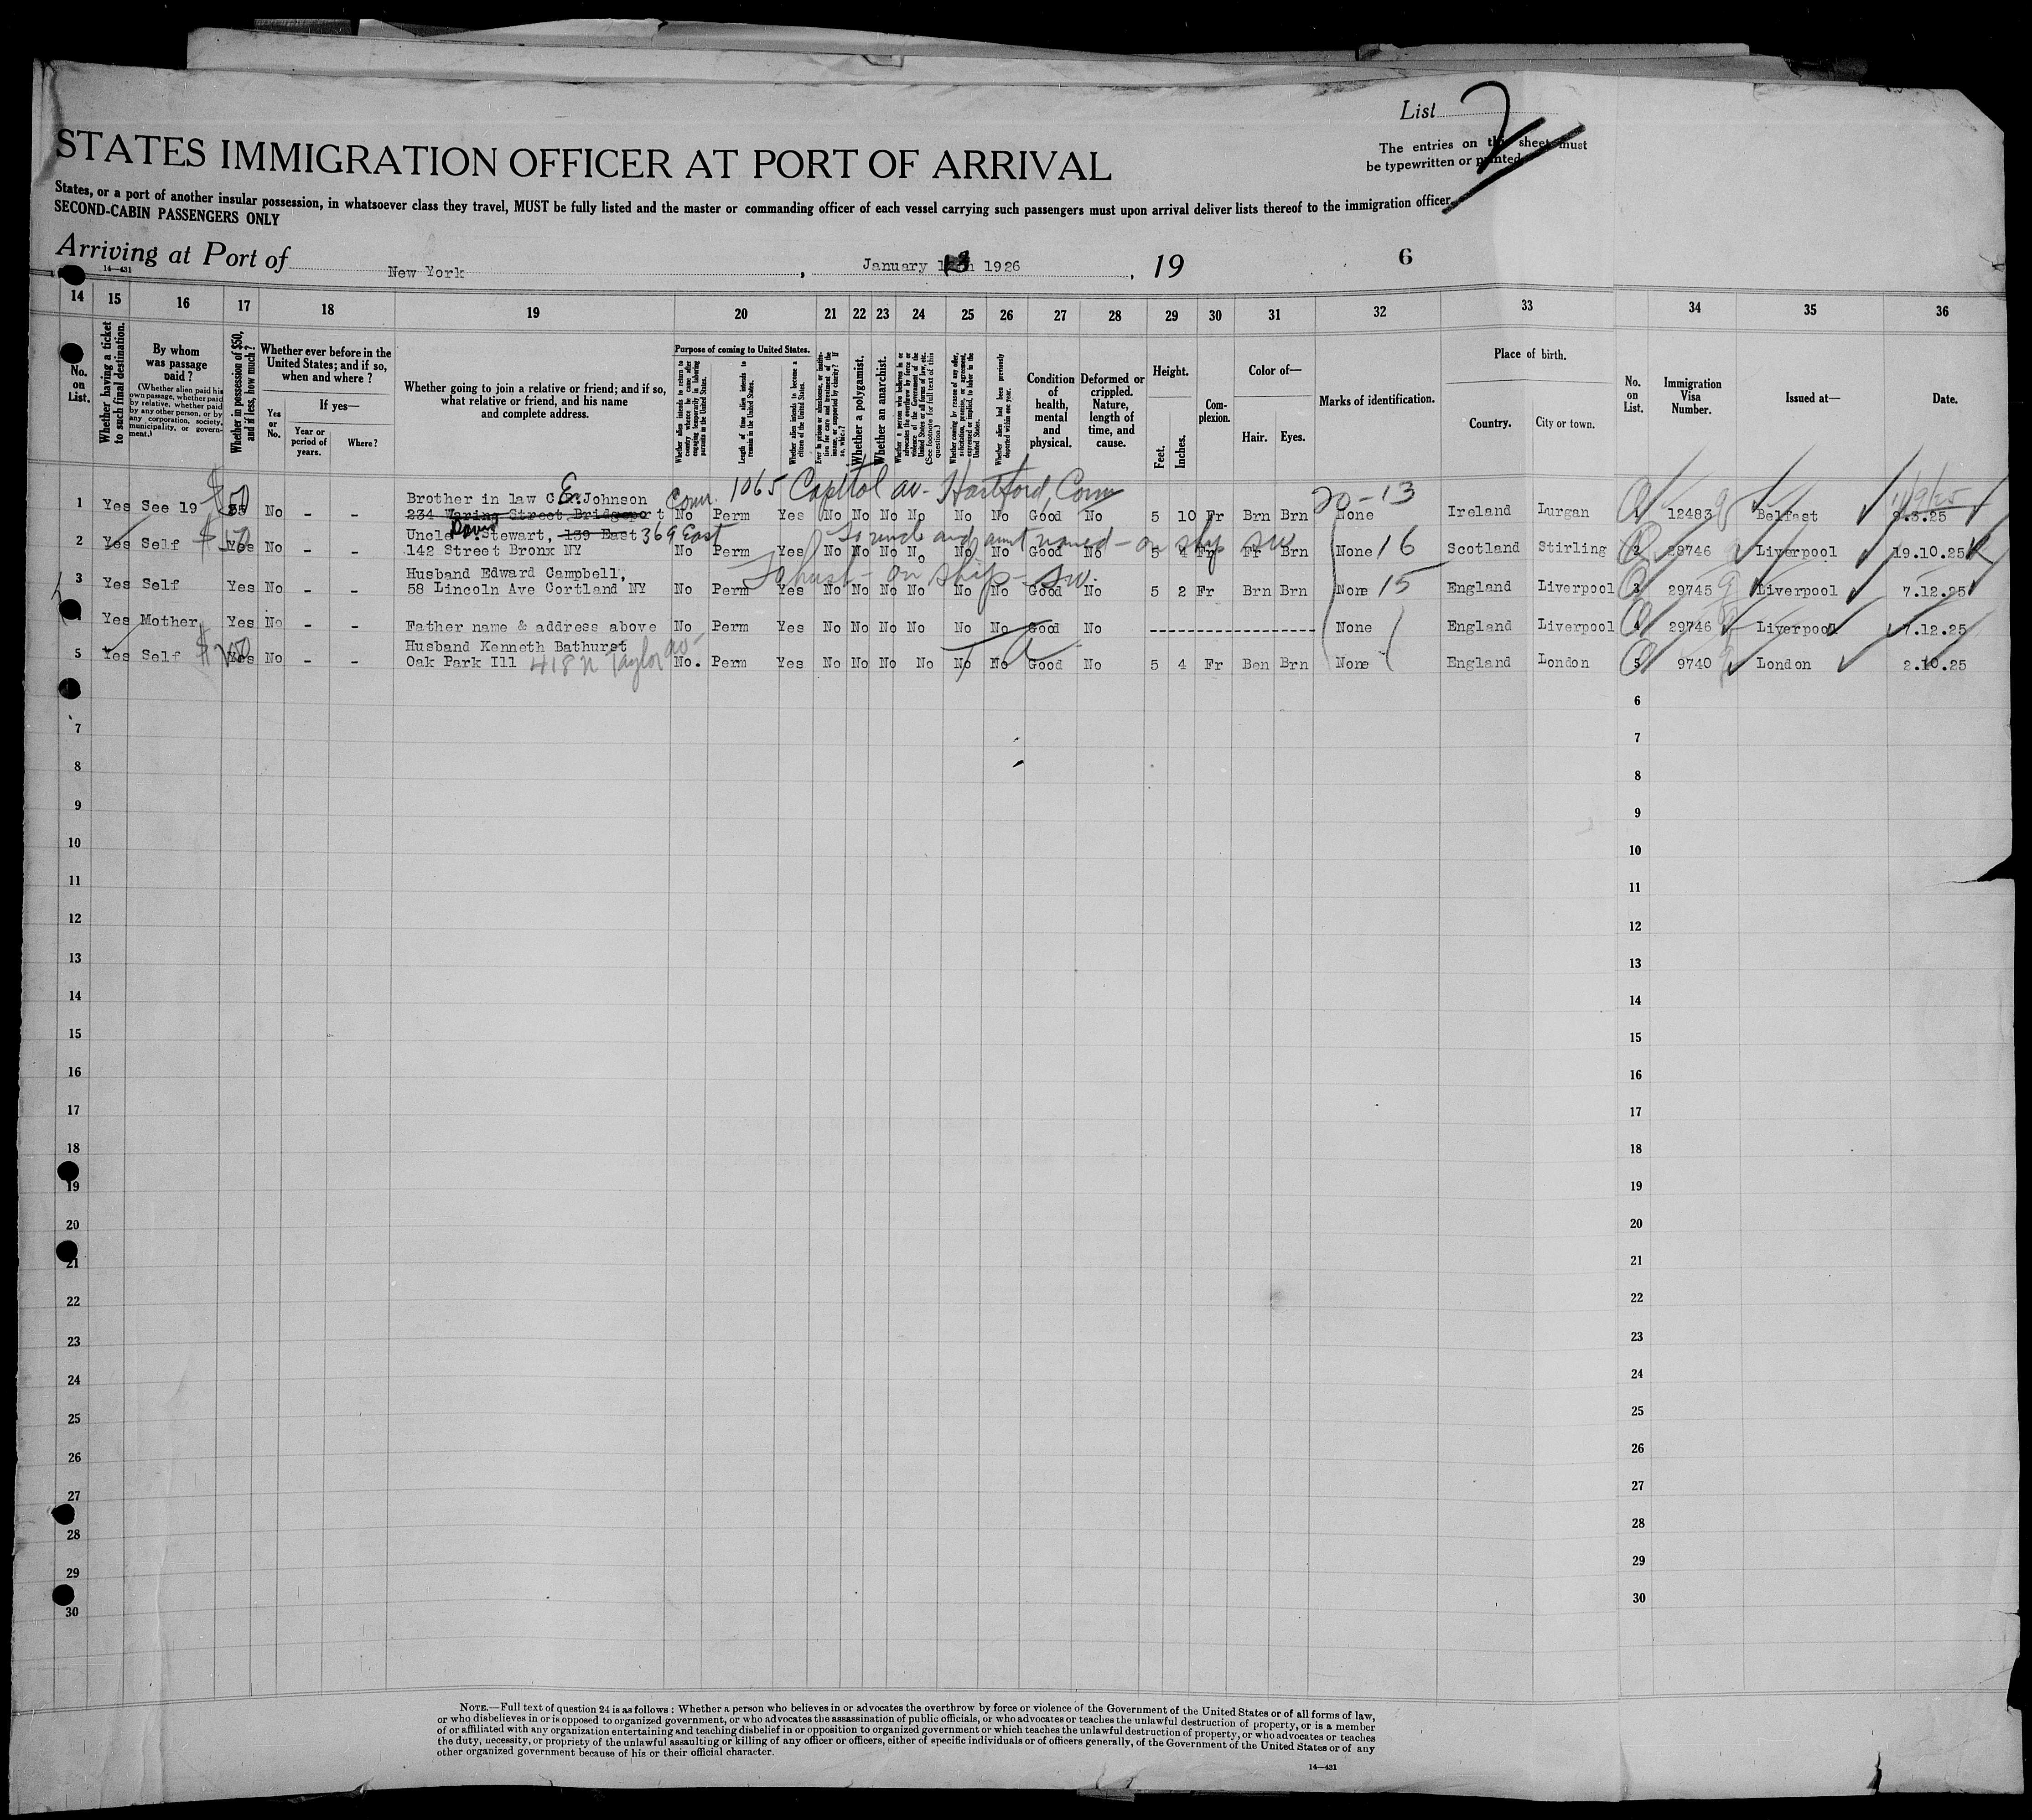 List 2
The entries on this sheet must
be typewritten or printed
STATES IMMIGRATION OFFICER AT PORT OF ARRIVAL
States, or a port of another insular possession, in whatsoever class they travel, MUST be fully listed and the master or commanding officer of each vessel carrying such passengers must upon arrival deliver lists thereof to the immigration officer
SECOND-CABIN PASSENGERS ONLY
Arriving at Port of New York, January 13 1926, 19 6
14—431
14 15 16 17 18 19 20 21 22 23 24 25 26 27 28 29 30 31 32 33 34 35 36
No. on List.
Whether having a ticket to such final destination.
By whom was passage paid?
(Whether alien paid his own passage, whether paid by relative, whether paid by any other person, or by any corporation, society, municipality, or government.)
Whether in possession of $50, and if less, how much?
Whether ever before in the United States; and if so, when and where?
Yes or No.
If yes—
Year or period of years.
Where?
Whether going to join a relative or friend; and if so, what relative or friend, and his name and complete address.
Purpose of coming to United States.
Whether alien intends to return to country whence he came after engaging temporarily in laboring pursuits in the United States.
Length of time alien intends to remain in the United States.
Whether alien intends to become a citizen of the United States.
Ever in prison or almshouse, or institution for care and treatment of the insane, or supported by charity? If so, which?
Whether a polygamist.
Whether an anarchist.
Whether a person who believes in or advocates the overthrow by force or violence of the Government of the United States or all forms of law, etc. (See footnote for full text of this question.)
Whether coming by reason of any offer, solicitation, promise, or agreement, expressed or implied, to labor in the United States.
Whether alien had been previously deported within one year.
Condition of health, mental and physical.
Deformed or crippled. Nature, length of time, and cause.
Height.
Feet. Inches.
Complexion.
Color of—
Hair. Eyes.
Marks of identification.
Place of birth.
Country. City or town.
No. on List.
Immigration Visa Number.
Issued at—
Date.
1065 Capitol av- Hartford, Conn
20-13
11/9/25
1 Yes See 19 $50 25 No - - Brother in law C.E. Johnson
234 Waring Street Bridgeport Conn. No Perm Yes No No No No No No Good No 5 10 Fr Brn Brn None Ireland Lurgan 1 12483 Belfast 9.3.25
To uncle and aunt named - on ship SW
2 Yes Self $50 Yes No - - Uncle David Stewart, 139 East 369 East
142 Street Bronx NY No Perm Yes No No No No No No Good No 5 4 Fr Fr Brn None 16 Scotland Stirling 2 29746 Liverpool 19.10.25 R
To husb - on ship - SW.
3 Yes Self Yes No - - Husband Edward Campbell,
58 Lincoln Ave Cortland NY No Perm Yes No No No No No No Good No 5 2 Fr Brn Brn None 15 England Liverpool 3 29745 Liverpool 7.12.25
4 Yes Mother Yes No - - Father name & address above No Perm Yes No No No No No No Good No ---------------- None England Liverpool 4 29746 Liverpool 7.12.25
5 Yes Self $200 Yes No - - Husband Kenneth Bathurst
Oak Park Ill 418 N Taylor av- No. Perm Yes No No No No No No Good No 5 4 Fr Ben Brn None England London 5 9740 London 2.10.25
6
7 7
8 8
9 9
10 10
11 11
12 12
13 13
14 14
15 15
16 16
17 17
18 18
19 19
20 20
21 21
22 22
23 23
24 24
25 25
26 26
27 27
28 28
29 29
30 30
NOTE.—Full text of question 24 is as follows: Whether a person who believes in or advocates the overthrow by force or violence of the Government of the United States or of all forms of law,
or who disbelieves in or is opposed to organized government, or who advocates the assassination of public officials, or who advocates or teaches the unlawful destruction of property, or is a member
of or affiliated with any organization entertaining and teaching disbelief in or opposition to organized government or which teaches the unlawful destruction of property, or who advocates or teaches
the duty, necessity, or propriety of the unlawful assaulting or killing of any officer or officers, either of specific individuals or of officers generally, of the Government of the United States or of any
other organized government because of his or their official character.
14—431